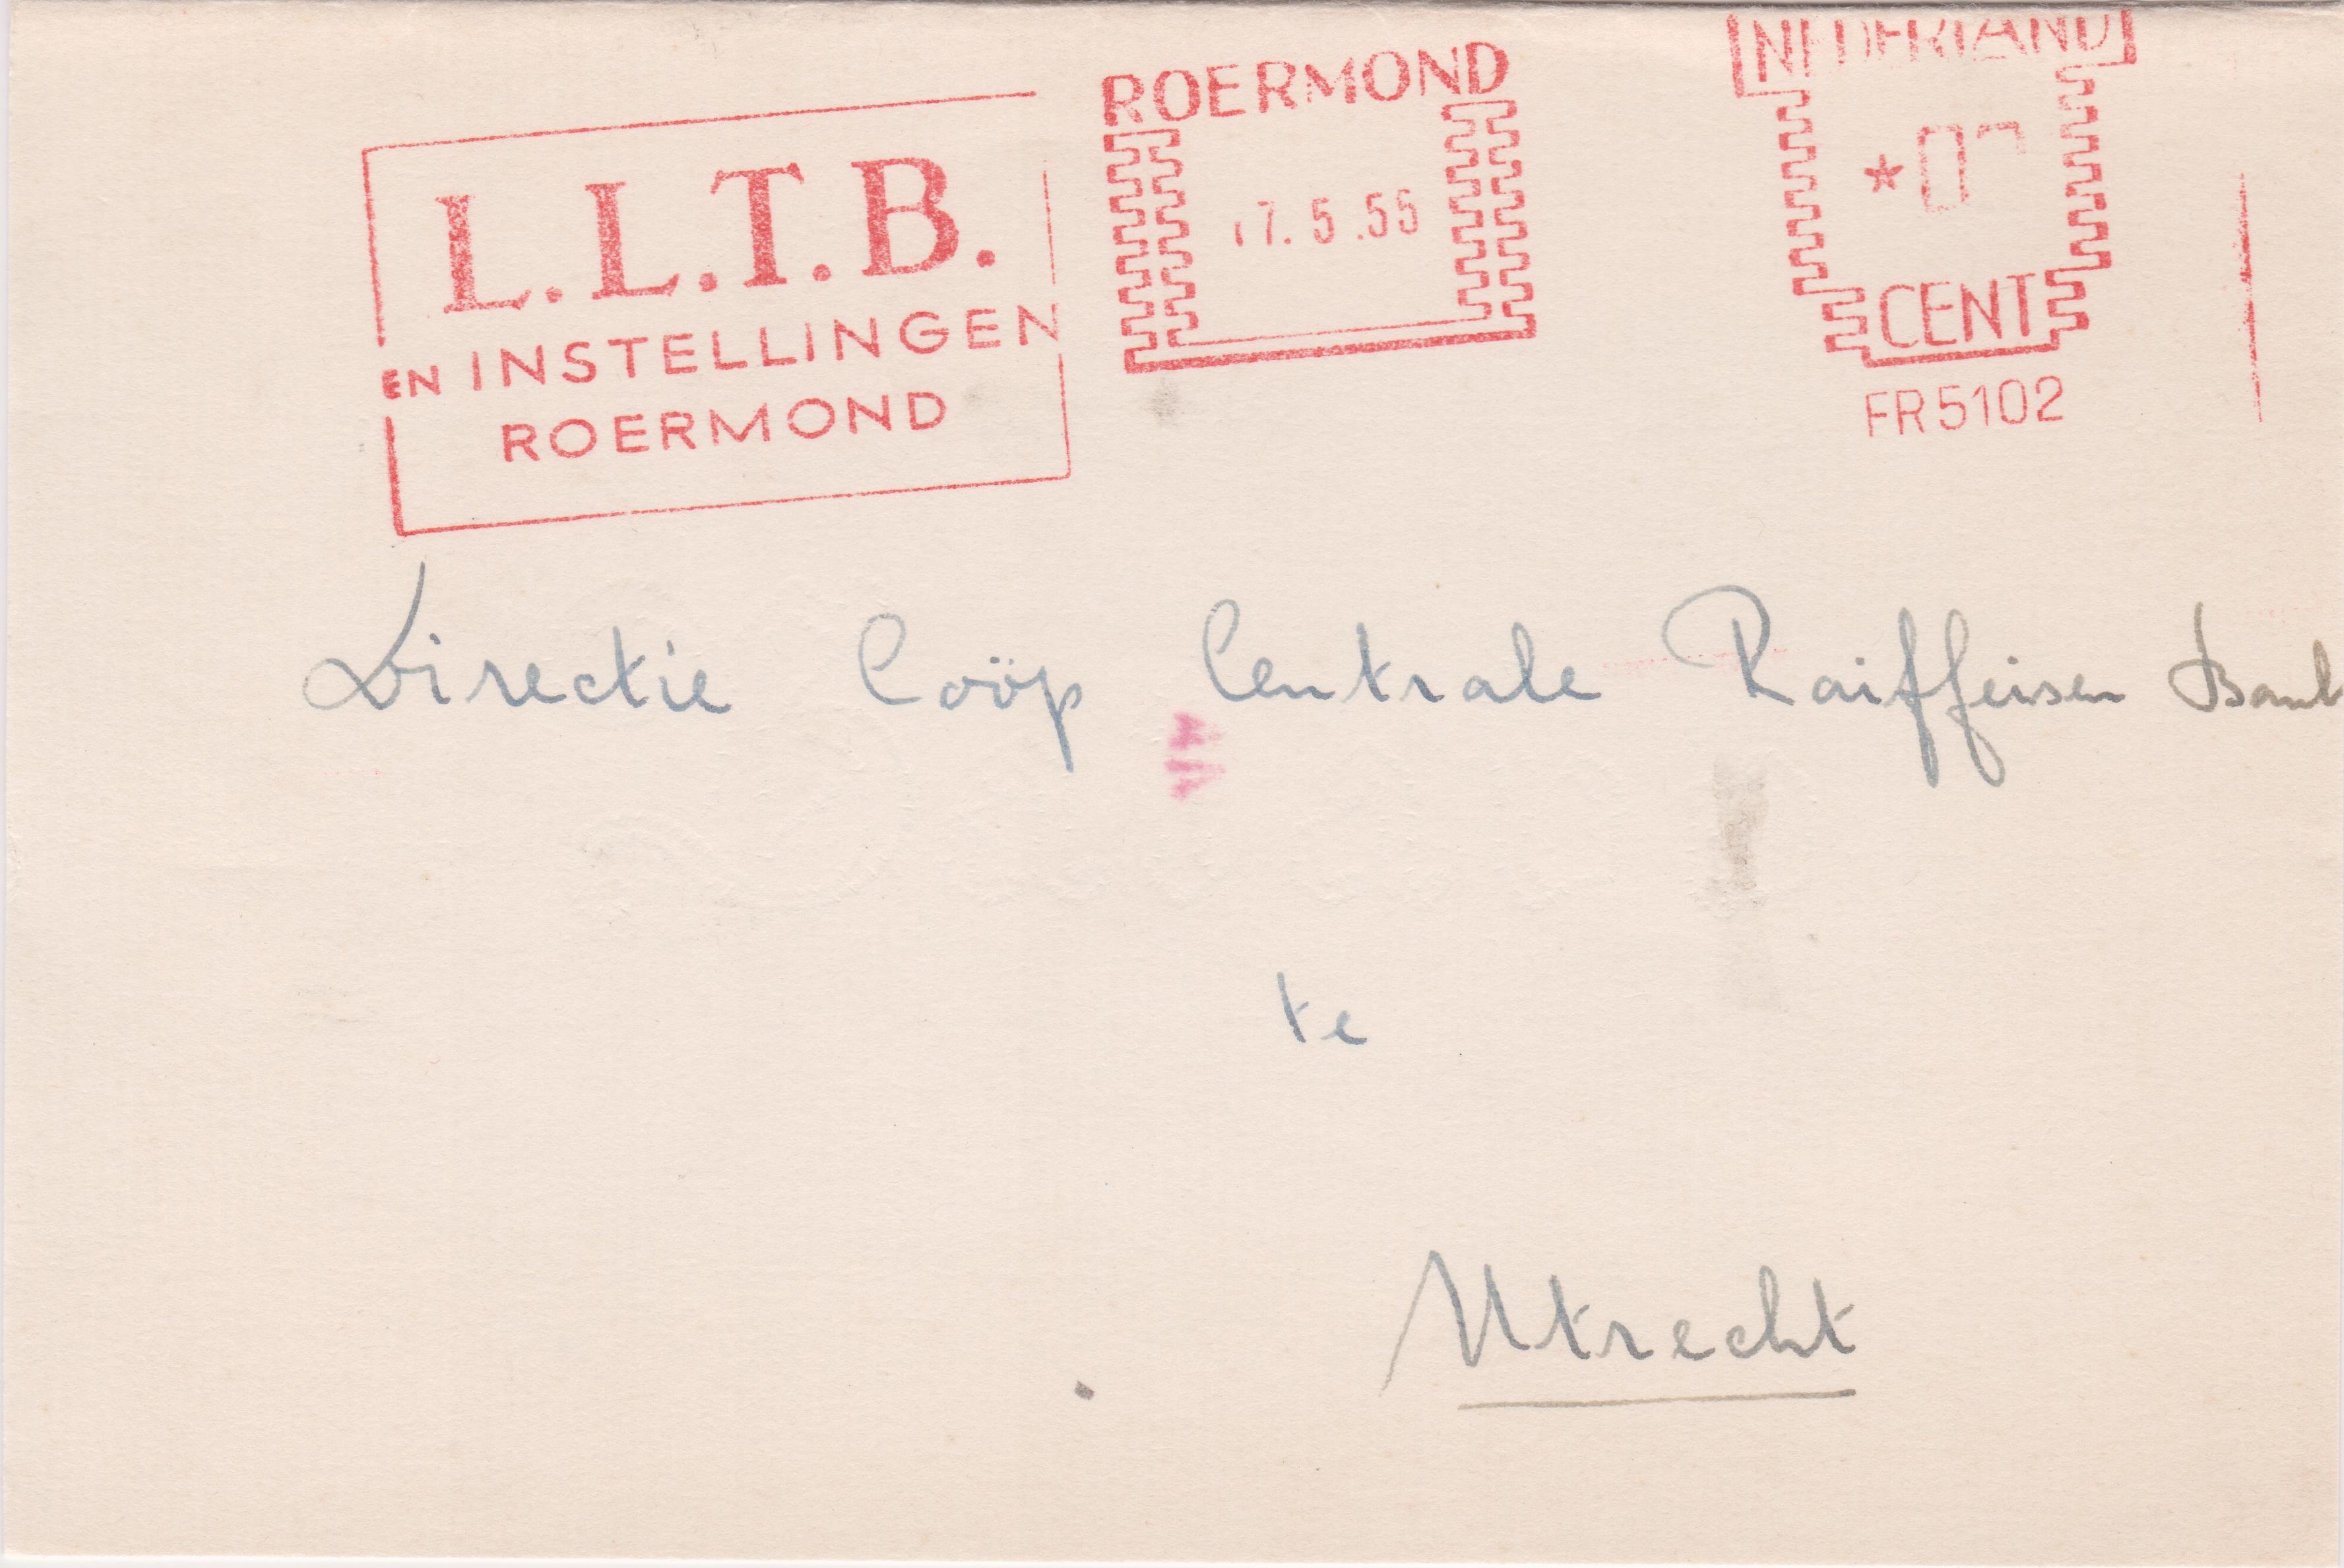 L.L.T.B.
EN INSTELLINGEN
ROERMOND
ROERMOND
17.5.55
NEDERLAND
CENT
FR5102
Directie Coöp Centrale Raiffeisen Bank
te
Utrecht